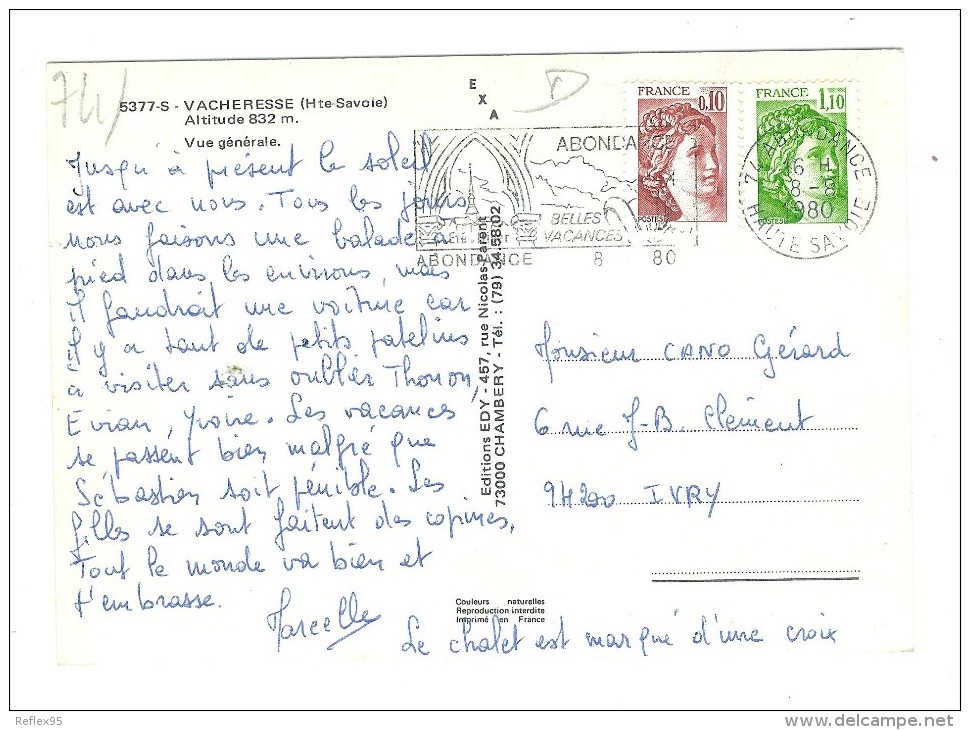 74/
5377-S - VACHERESSE (Hte-Savoie)
Altitude 832 m.
Vue générale.
EXA
D
FRANCE
0,10
POSTES
FRANCE
1,10
POSTES
ABONDANCE
BELLES
VACANCES
ABONDANCE 8 80
74 ABONDANCE
16 H
8 - 8
1980
HAUTE SAVOIE
Jusqu'à présent le soleil
est avec nous. Tous les jours
nous faisons une balade à
pied dans les environs, mais
il faudrait une voiture car
il y a tant de petits patelins
à visiter sans oublier Thonon,
Evian, Yvoire. Les vacances
se passent bien malgré que
Sébastien soit pénible. Les
filles se sont faitent des copines,
Tout le monde va bien et
t'embrasse.
Marcelle
Le chalet est marqué d'une croix
Editions EDY - 457, rue Nicolas Parent
73000 CHAMBERY - Tél. : (79) 34.58.02
Monsieur CANO Gérard
6 rue J-B. Clément
94200 IVRY
Couleurs naturelles
Reproduction interdite
Imprimé en France
Reflex95
delcampe.net